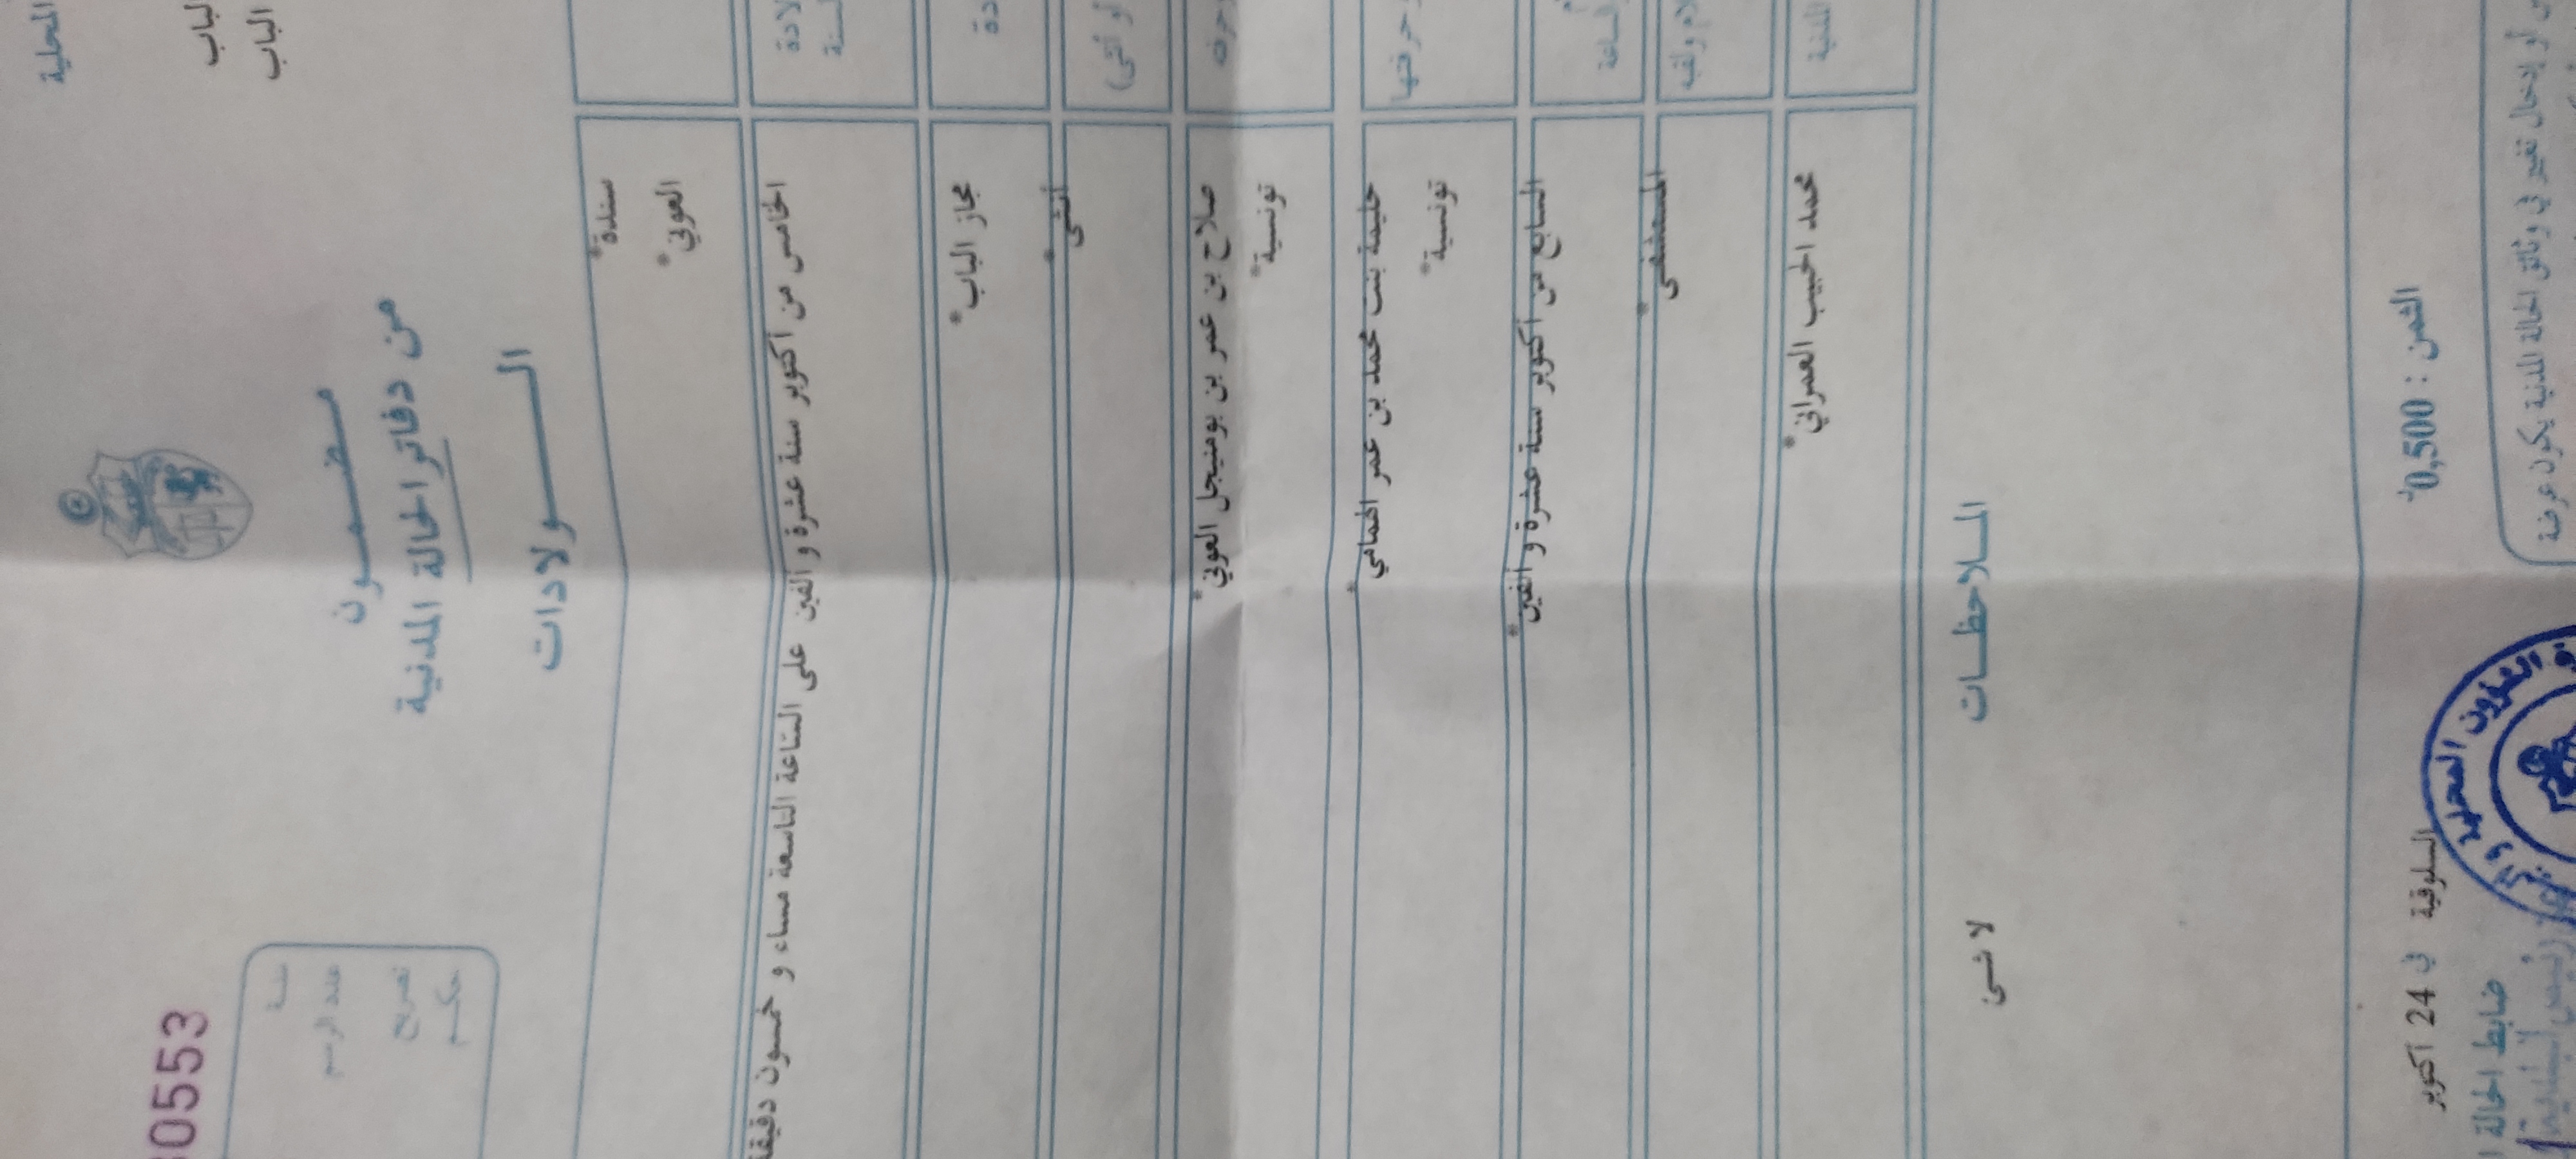 المحلية
الباب
الباب
مضمون
من دفاتر الحالة المدنية
الولادات
30553
سنة
عدد الرسم
تصريح
حكم
سندة*
العوني*
الخامس من أكتوبر سنة عشرة و ألفين على الساعة التاسعة مساء و خمسون دقيقة
مجاز الباب*
أنثى*
صلاح بن عمر بن بومنيجل العوني*
تونسية*
حليمة بنت محمد بن عمر الهمامي*
تونسية*
السابع من أكتوبر سنة عشرة و ألفين*
المستشفى*
محمد الحبيب العمراني*
الملاحظات
لا شئ
الثمن : 0,500د
السلوقية في 24 أكتوبر
ضابط الحالة
أو إدخال تغيير في وثائق الحالة المدنية يكون عرضة
الشؤون المحلية